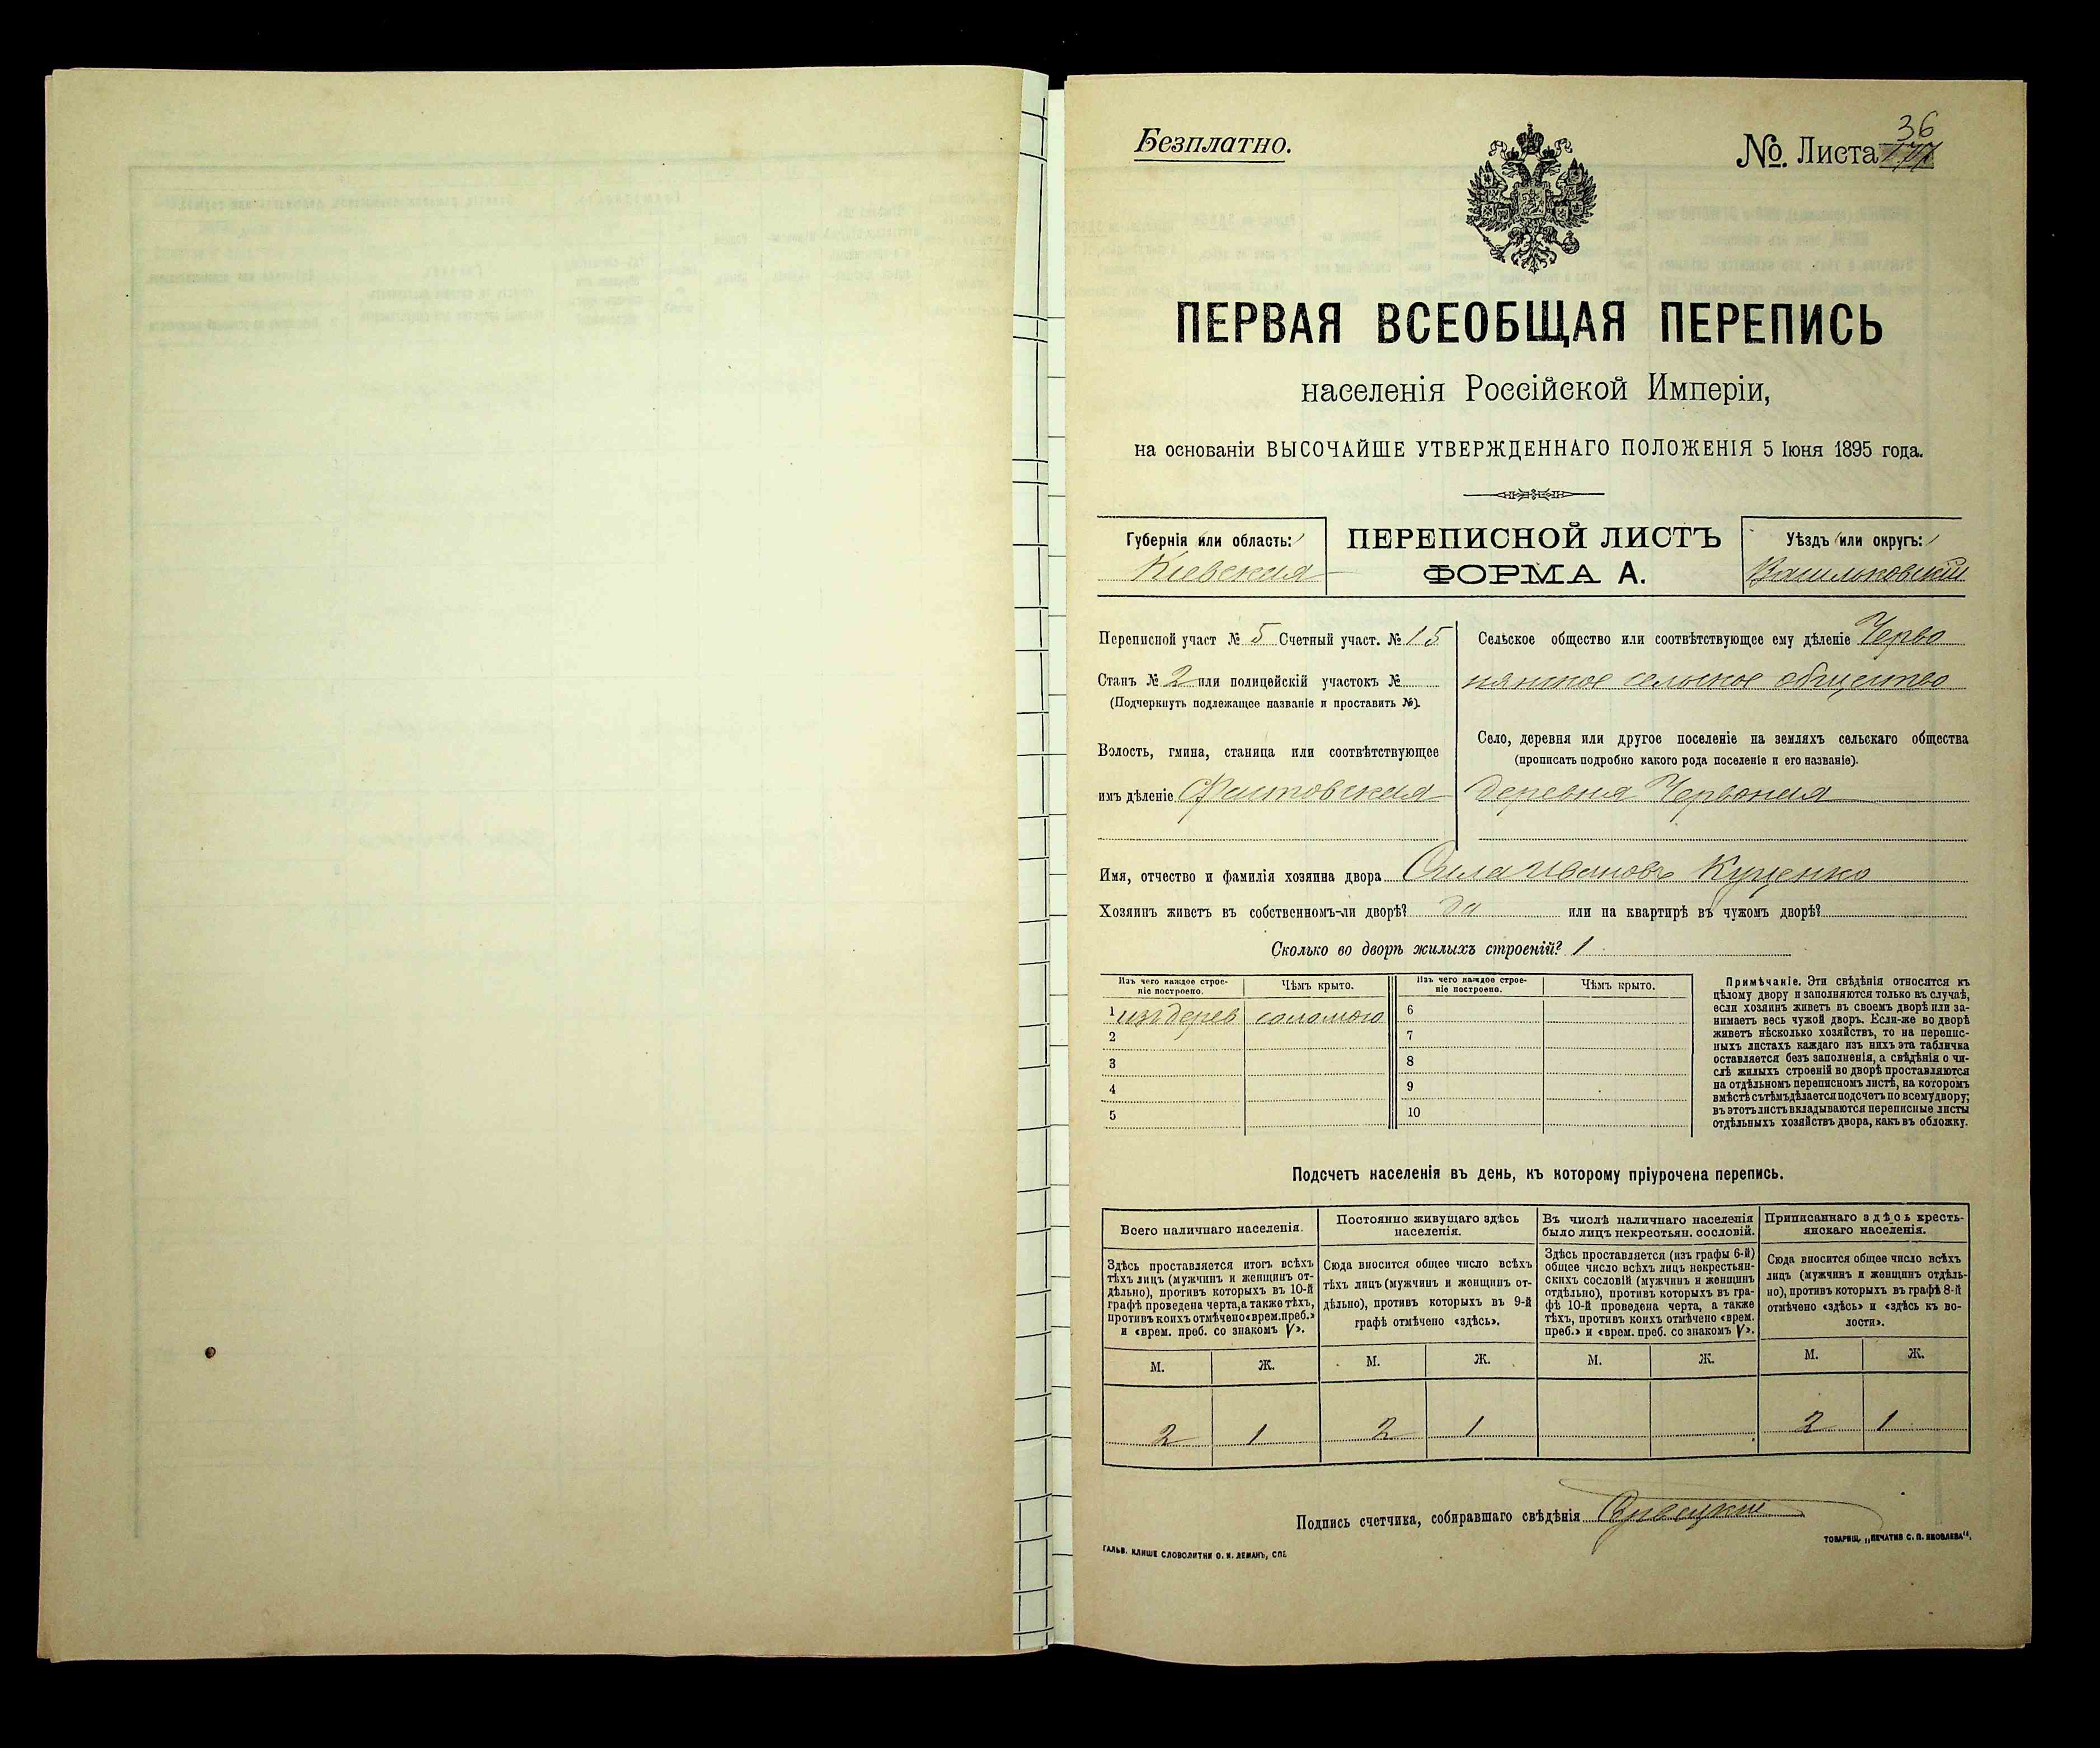 Безплатно.
36
№ Листа
ПЕРВАЯ ВСЕОБЩАЯ ПЕРЕПИСЬ
населенія Россійской Имперіи,
на основаніи ВЫСОЧАЙШЕ УТВЕРЖДЕННАГО ПОЛОЖЕНІЯ 5 Іюня 1895 года.
Губернія или область:
Кіевская
ПЕРЕПИСНОЙ ЛИСТЪ
ФОРМА А.
Уѣздъ или округъ:
Васильковскій
Переписной участ № 5 Счетный участ. № 15
Станъ № 2 или полицейскій участокъ №
(Подчеркнуть подлежащее названіе и проставить №).
Волость, гмина, станица или соотвѣтствующее
имъ дѣленіе
Сельское общество или соотвѣтствующее ему дѣленіе Черво
нянское сельское общество
Село, деревня или другое поселеніе на земляхъ сельскаго общества
(прописать подробно какого рода поселеніе и его названіе).
деревня Червоная
Имя, отчество и фамилія хозяина двора Сила Ивановъ Куценко
Хозяинъ живетъ въ собственномъ-ли дворѣ? да или на квартирѣ въ чужомъ дворѣ?
Сколько во дворѣ жилыхъ строеній? 1
Изъ чего каждое строе-
ніе построено.
Чѣмъ крыто.
1 изъ дерев соломою
2
3
4
5
Изъ чего каждое строе-
ніе построено.
Чѣмъ крыто.
6
7
8
9
10
Примѣчаніе. Эти свѣдѣнія относятся къ
цѣлому двору и заполняются только въ случаѣ,
если хозяинъ живетъ въ своемъ дворѣ или за-
нимаетъ весь чужой дворъ. Если-же во дворѣ
живетъ нѣсколько хозяйствъ, то на перепис-
ныхъ листахъ каждаго изъ нихъ эта табличка
оставляется безъ заполненія, а свѣдѣнія о чи-
слѣ жилыхъ строеній во дворѣ проставляются
на отдѣльномъ переписномъ листѣ, на которомъ
вмѣстѣ съ тѣмъ дѣлается подсчетъ по всему двору;
въ этотъ листъ вкладываются переписные листы
отдѣльныхъ хозяйствъ двора, какъ въ обложку.
Подсчетъ населенія въ день, къ которому пріурочена перепись.
Всего наличнаго населенія.
Здѣсь проставляется итогъ всѣхъ
тѣхъ лицъ (мужчинъ и женщинъ от-
дѣльно), противъ которыхъ въ 10-й
графѣ проведена черта, а также тѣхъ,
противъ коихъ отмѣчено «врем. преб.»
и «врем. преб. со знакомъ V».
М. Ж.
2 1
Постоянно живущаго здѣсь
населенія.
Сюда вносится общее число всѣхъ
тѣхъ лицъ (мужчинъ и женщинъ от-
дѣльно), противъ которыхъ въ 9-й
графѣ отмѣчено «здѣсь».
М. Ж.
2 1
Въ числѣ наличнаго населенія
было лицъ некрестьян. сословій.
Здѣсь проставляется (изъ графы 6-й)
общее число всѣхъ лицъ некрестьян-
скихъ сословій (мужчинъ и женщинъ
отдѣльно), противъ которыхъ въ гра-
фѣ 10-й проведена черта, а также
тѣхъ, противъ коихъ отмѣчено «врем.
преб.» и «врем. преб. со знакомъ V».
М. Ж.
Приписаннаго здѣсь кресть-
янскаго населенія.
Сюда вносится общее число всѣхъ
лицъ (мужчинъ и женщинъ отдѣль-
но), противъ которыхъ въ графѣ 8-й
отмѣчено «здѣсь» и «здѣсь къ во-
лости».
М. Ж.
2 1
Подпись счетчика, собиравшаго свѣдѣнія
ГАЛЬВ. КЛИШЕ СЛОВОЛИТНИ О. И. ЛЕМАНЪ, СПБ.
ТОВАРИЩ. „ПЕЧАТНЯ С. П. ЯКОВЛЕВА“.